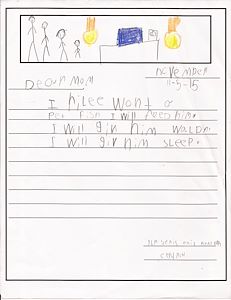 november
11-5-15
Dear mom
I rilee wont a
Pet Fish I will feed him.
I will giv him watdr.
I will giv him sleep.